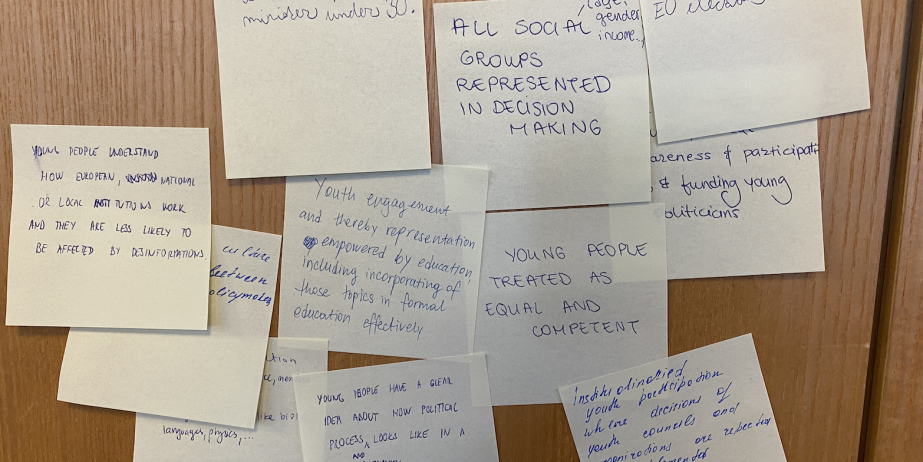 minister under 30.
ALL SOCIAL
gender,
income...
GROUPS
REPRESENTED
IN DECISION
MAKING
EU
YOUNG PEOPLE UNDERSTAND
HOW EUROPEAN, NATIONAL
OR LOCAL INSTITUTIONS WORK
AND THEY ARE LESS LIKELY TO
BE AFFECTED BY DESINFORMATIONS
Youth engagement
and thereby representation
empowered by education,
including incorporating of
those topics in formal
education effectively
areness & participati
& funding young
oliticians
YOUNG PEOPLE
TREATED AS
EQUAL AND
COMPETENT
between
olicymakers
languages, physics, ...
YOUNG PEOPLE HAVE A CLEAR
IDEA ABOUT HOW POLITICAL
PROCESS LOOKS LIKE IN A
AND
youth participation
where decisions of
youth councils and
are respected